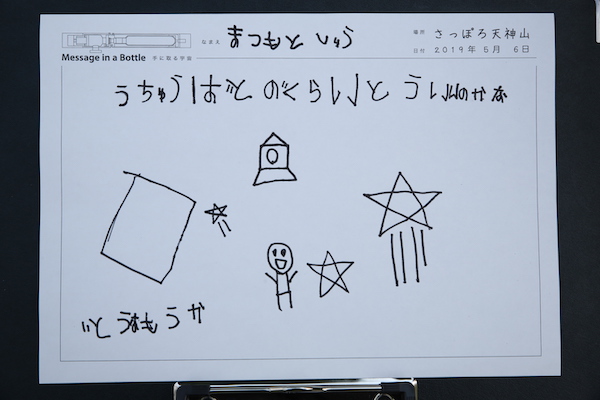 なまえ まつもと しゅう
場所 さっぽろ天神山
Message in a Bottle 手に取る宇宙
日付 2019年 5月 6日
うちゅうはどのくらいとういのかな
どうおもうか